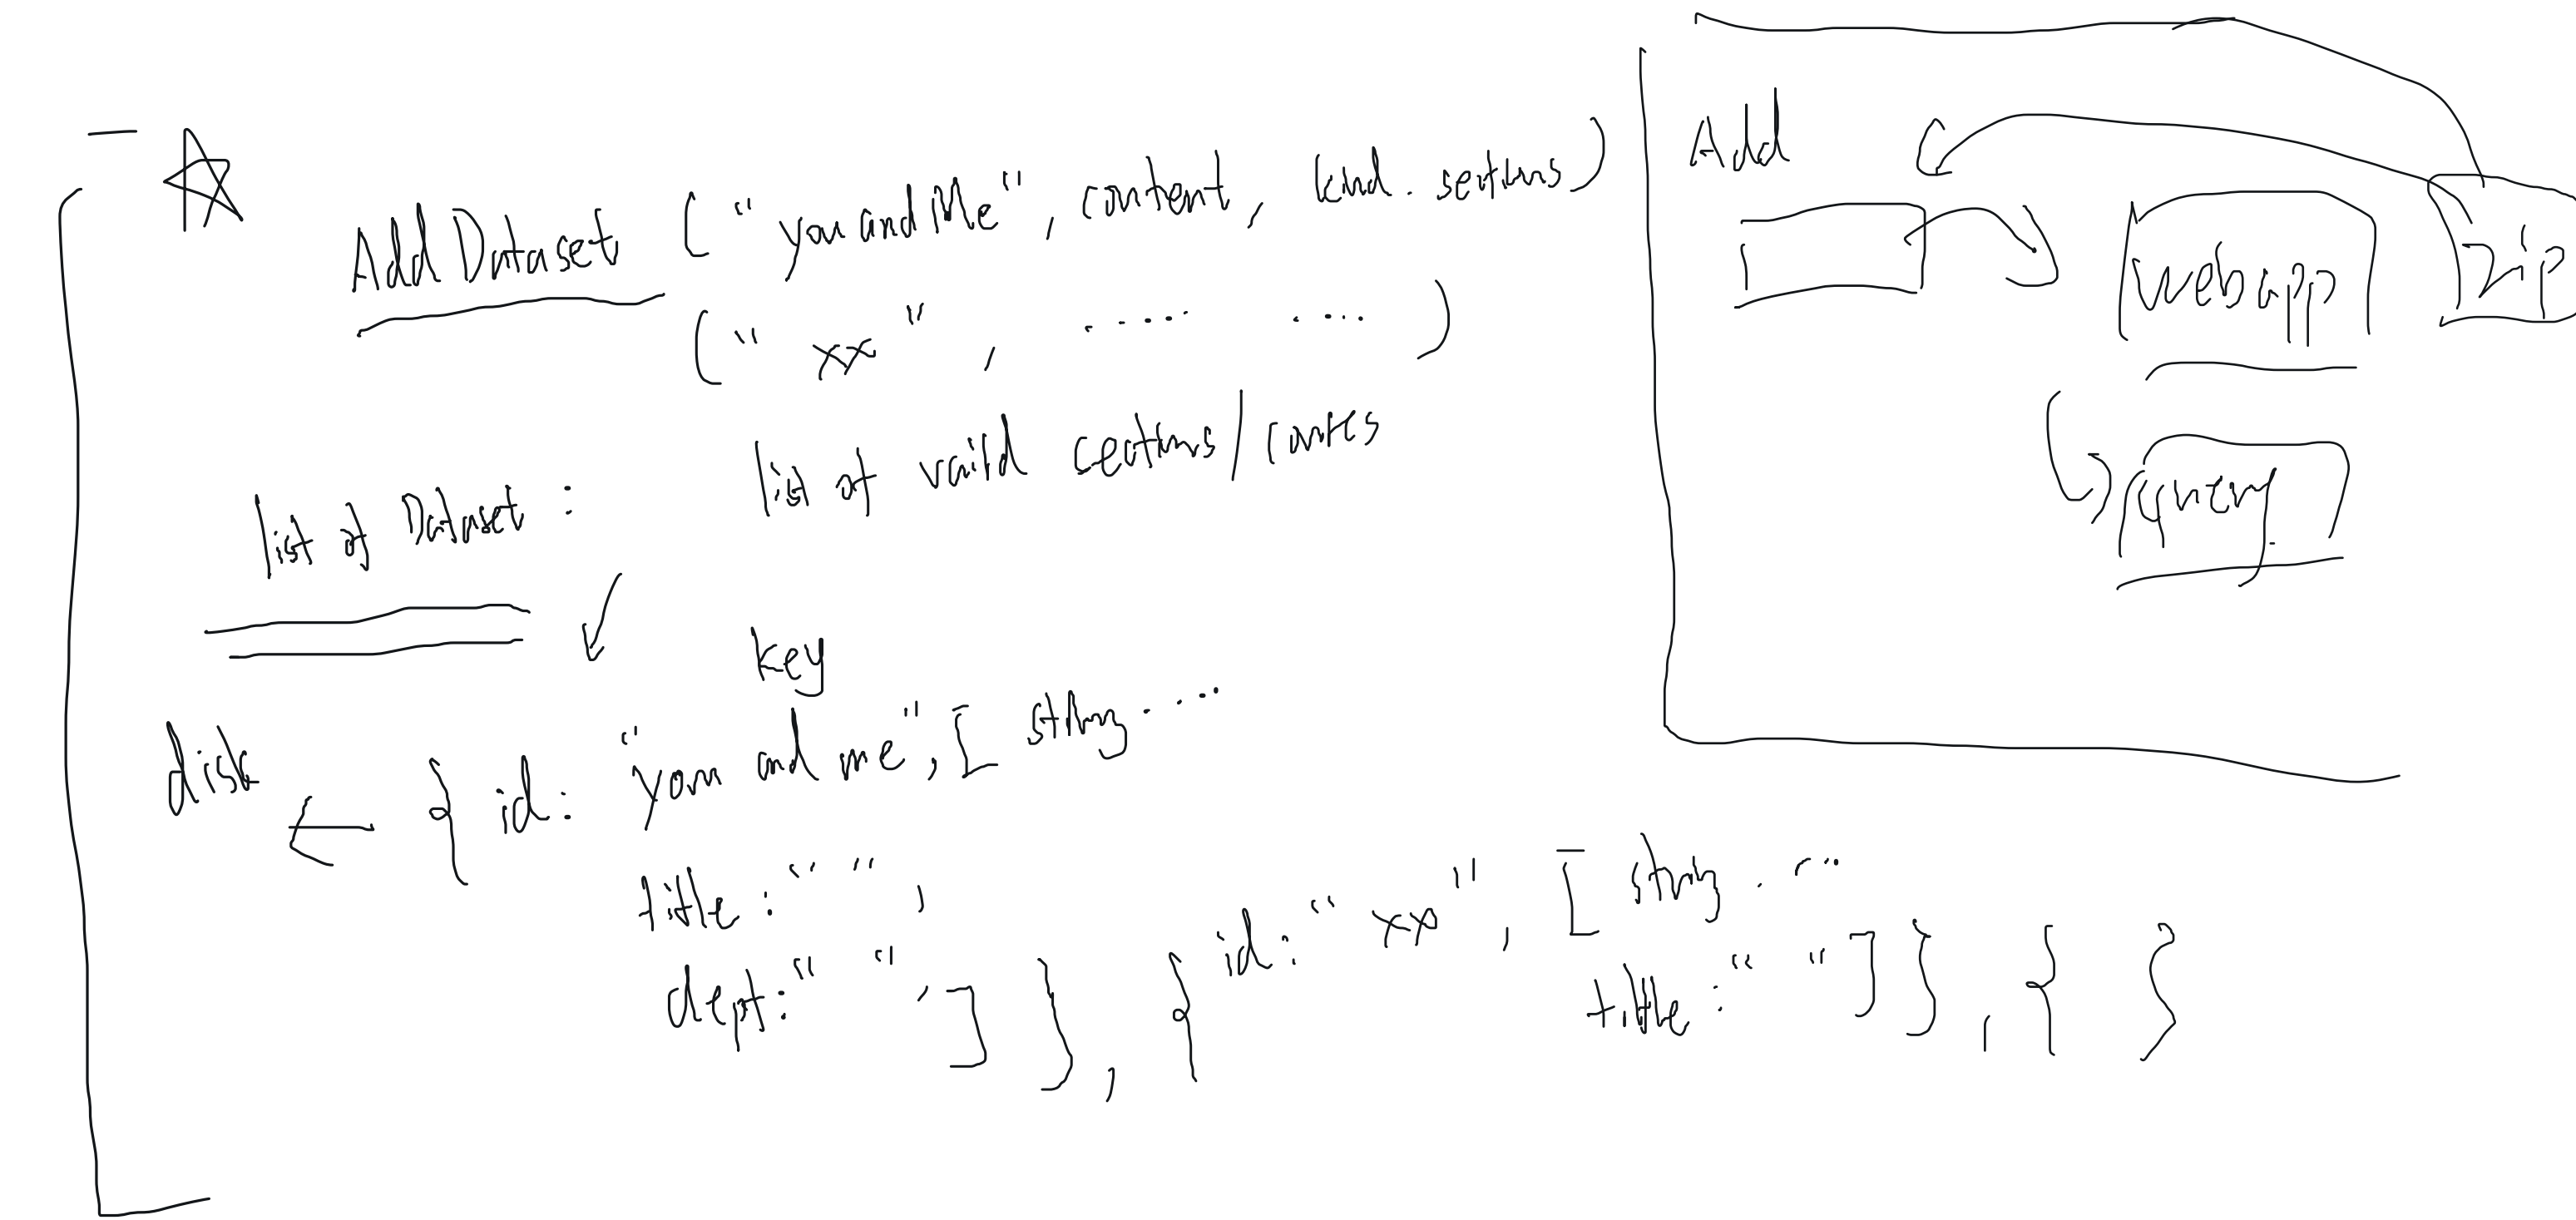 AddDataset ("you and Me", content, kind. sections)
("xx", ..... ....)
list of vaild cections/
list of Dataset :
key
disk ← { id: "you and me", [ string ....
title : " " ,
dept: " " , ] } , { id: "xx" , [ string . ...
title : " " ] } , { }
Add
webapp
zip
query